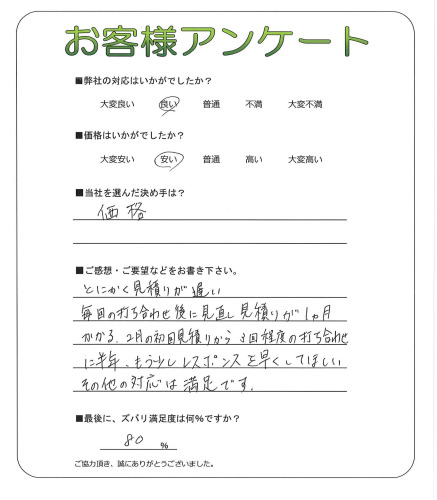 お客様アンケート
■弊社の対応はいかがでしたか？
大変良い 良い 普通 不満 大変不満
■価格はいかがでしたか？
大変安い 安い 普通 高い 大変高い
■当社を選んだ決め手は？
価格
■ご感想・ご要望などをお書き下さい。
とにかく見積りが遅い
毎回の打ち合わせ後に見直し見積りが1ヵ月
かかる。2月の初回見積りから3回程度の打ち合わせ
に半年、もう少しレスポンスを早くしてほしい
その他の対応は満足です。
■最後に、ズバリ満足度は何％ですか？
80 ％
ご協力頂き、誠にありがとうございました。